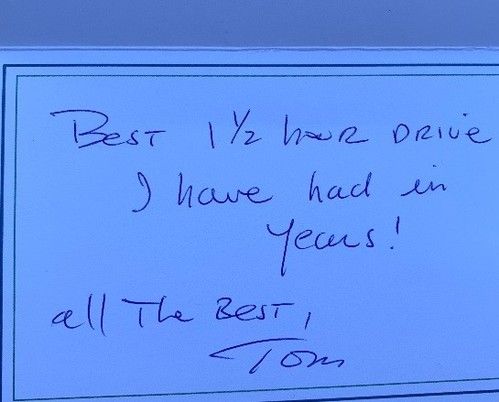 Best 1 1/2 hour Drive
I have had in
years!
all The Best,
Tom